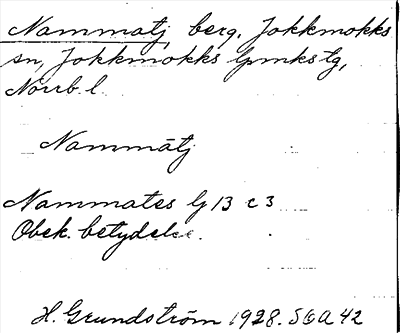 Nammatj, berg, Jokkmokks
sn, Jokkmokks lpmkstg,
Norrb. l.
Nammātj
Nammates lg 13 c 3
Obek. betydelse.
H. Grundström 1928. SOA 42